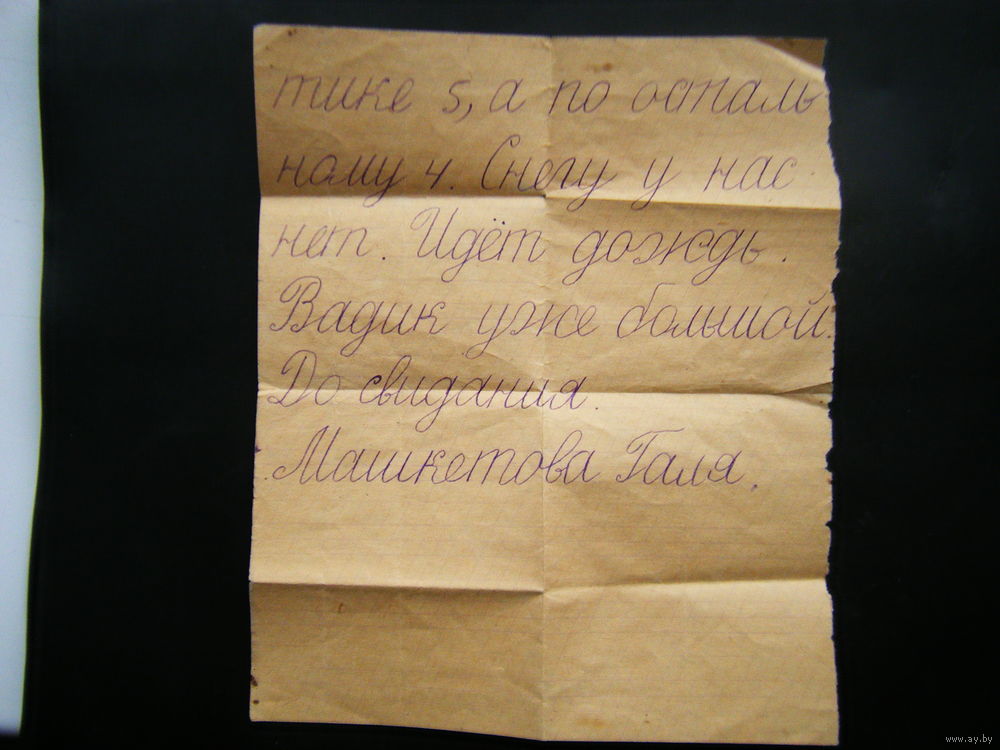 тике 5, а по осталь
ному 4. Снегу у нас
нет. Идёт дождь.
Вадик уже большой.
До свидания.
Машкетова Галя.
www.ay.by